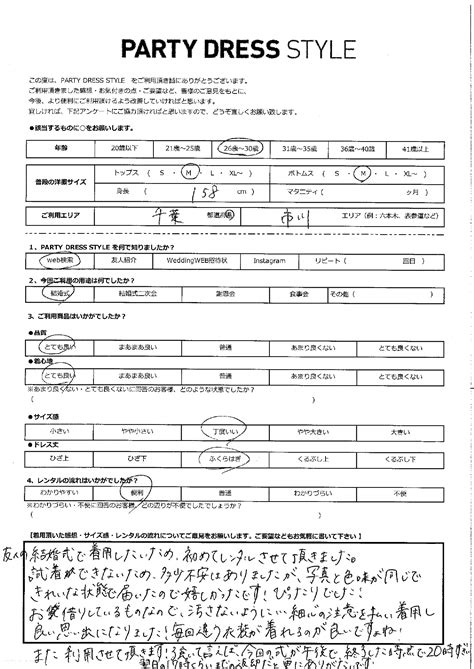 PARTY DRESS STYLE
この度は、PARTY DRESS STYLE をご利用頂き誠にありがとうございます。
ご利用頂きました感想・お気付きの点・ご要望など、皆様のご意見をもとに、
今後、より便利にご利用頂けるよう改善していければと思います。
宜しければ、下記アンケートにご協力頂ければと思いますので、どうぞ宜しくお願い致します。
●該当するものに○をお願いします。
年齢 20歳以下 21歳～25歳 26歳～30歳 31歳～35歳 36歳～40歳 41歳以上
普段の洋服サイズ トップス ( S ・ M ・ L ・ XL～ ) ボトムス ( S ・ M ・ L ・ XL～ )
身長 ( 158 cm ) マタニティ ( ヶ月 )
ご利用エリア 千葉 都道府県 市川 エリア (例:六本木、表参道など)
1、PARTY DRESS STYLE を何で知りましたか?
web検索 友人紹介 WeddingWEB招待状 Instagram リピート ( 回目 )
2、今回ご利用の用途は何でしたか?
結婚式 結婚式二次会 謝恩会 食事会 その他 ( )
3、ご利用商品はいかがでしたか?
●品質
とても良い まあまあ良い 普通 あまり良くない とても良くない
●着心地
とても良い まあまあ良い 普通 あまり良くない とても良くない
※あまり良くない・とても良くないに回答のお客様、どのような状態でしたか?
( )
●サイズ感
小さい やや小さい 丁度いい やや大きい 大きい
●ドレス丈
ひざ上 ひざ下 ふくらはぎ くるぶし上 くるぶし下
4、レンタルの流れはいかがでしたか?
わかりやすい 便利 普通 わかりづらい 不便
※わかりづらい・不便に回答のお客様、どの辺りが不便でしたでしょうか?
( )
【着用頂いた感想・サイズ感・レンタルの流れについてご意見をお願いします。ご要望などもお気軽に書いて下さい】
友人の結婚式で着用したいため、初めてレンタルさせて頂きました。
試着ができないため、多少不安はありましたが、写真と色味が同じで
きれいな状態で届いたので嬉しかったです!ぴったりでした!
お借りしているものなので、汚さないように細心の注意を払い着用し
良い思い出になりました!毎回違う衣装が着れるのが良いですよね!
また利用させて頂きます!強いて言えば、今回の式が午後で、終了した時点で20時すぎ